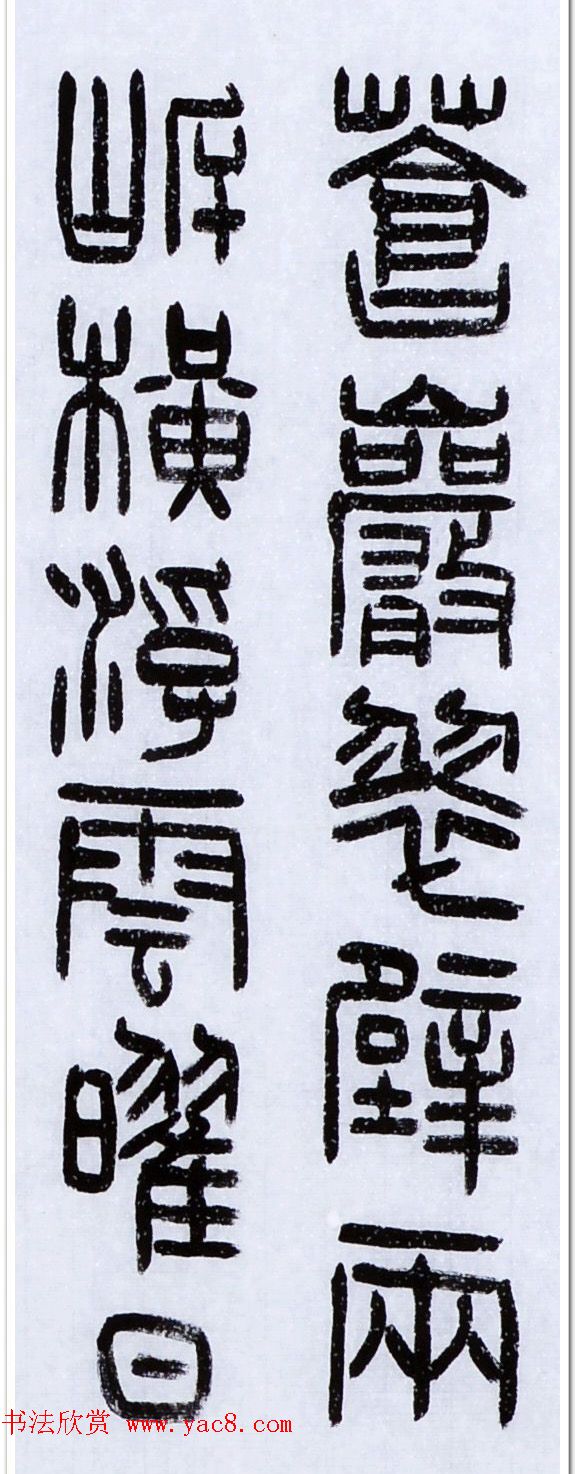 蒼巖翠壁兩
岸橫浮雲曜日
书法欣赏 www.yac8.com